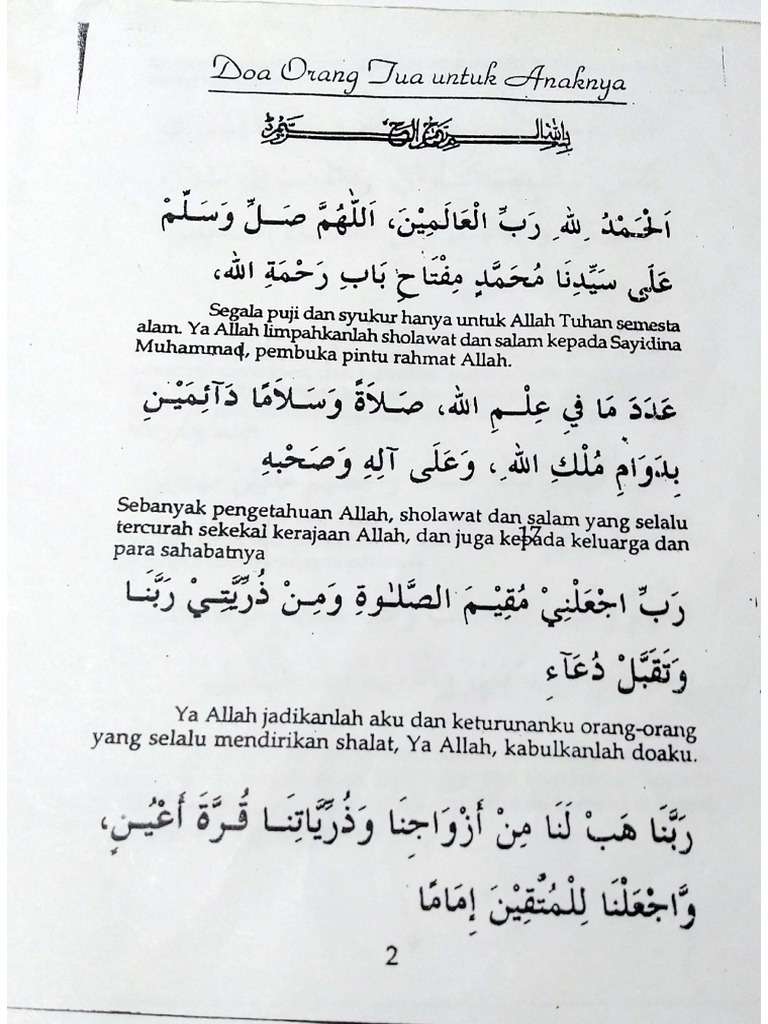 Doa Orang Tua untuk Anaknya
بِسْمِ اللهِ الرَّحْمٰنِ الرَّحِيْمِ
اَلْحَمْدُ لِلهِ رَبِّ الْعَالَمِيْنَ، اَللّٰهُمَّ صَلِّ وَسَلِّمْ
عَلَى سَيِّدِنَا مُحَمَّدٍ مِفْتَاحِ بَابِ رَحْمَةِ اللهِ،
Segala puji dan syukur hanya untuk Allah Tuhan semesta
alam. Ya Allah limpahkanlah sholawat dan salam kepada Sayidina
Muhammad, pembuka pintu rahmat Allah.
عَدَدَ مَا فِي عِلْمِ اللهِ، صَلاَةً وَسَلاَمًا دَآئِمَيْنِ
بِدَوَامِ مُلْكِ اللهِ، وَعَلَى آلِهِ وَصَحْبِهِ
Sebanyak pengetahuan Allah, sholawat dan salam yang selalu
tercurah sekekal kerajaan Allah, dan juga kepada keluarga dan
para sahabatnya
17
رَبِّ اجْعَلْنِيْ مُقِيْمَ الصَّلٰوةِ وَمِنْ ذُرِّيَّتِيْ رَبَّنَا
وَتَقَبَّلْ دُعَآءِ
Ya Allah jadikanlah aku dan keturunanku orang-orang
yang selalu mendirikan shalat, Ya Allah, kabulkanlah doaku.
رَبَّنَا هَبْ لَنَا مِنْ أَزْوَاجِنَا وَذُرِّيَّاتِنَا قُرَّةَ أَعْيُنٍ،
وَّاجْعَلْنَا لِلْمُتَّقِيْنَ إِمَامًا
2